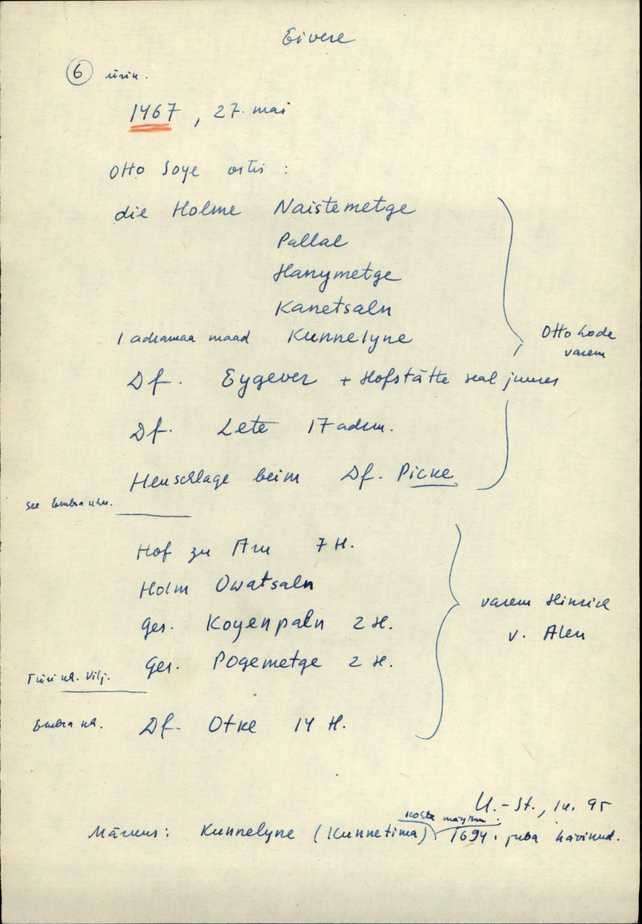 Eivere
6 ürik.
1467, 27. mai
Otto Soye ostis :
die Holme Naistemetge
Pallal
Hanymetge
Kanetsaln
1 adramaa maad Kunnelyne
Otto Lode
varem
Df. Eygever + Hofstätte seal juures
Df. Lete 17 adrm.
Heuschlage beim Df. Picke
see
Hof zu Aru 7 H.
Holm Owatsaln
varem Hinrich
Ges. Koyenpaln 2 H.
v. Alen
Ges. Pogemetge 2 H.
Türi kh. Vilj.
kh. Df. Otke 14 H.
U.-St., lk. 95
koha märkm.
Märkus: Kunnelyne (Kunnetima) 1694. juba hävinud.